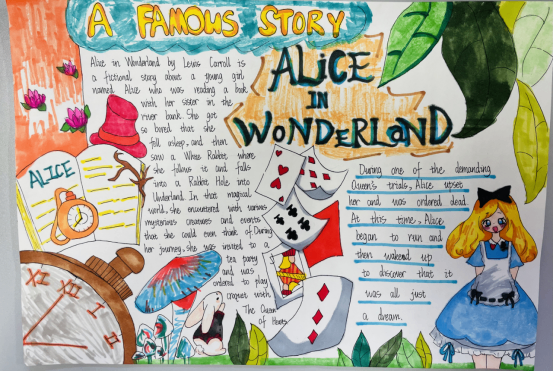 A FAMOUS STORY
ALiCE
IN
WONDERLAND
Alice in Wonderland by Lewis Carroll is
a fictional story about a young girl
named Alice who was reading a book
with her sister in the
river bank. She got
so bored that she
fell asleep, and then
saw a White Rabbit where
she follows it and falls
into a Rabbit Hole into
Underland. In that magical
world, she encountered with various
mysterious creatures and events
that she could even think of. During
her journey, she was invited to a
tea party
and was
ordered to play
croquet with
The Queen
of Hearts
ALICE
XII
I
II
During one of the demanding
Queen's trials, Alice upset
her and was ordered dead.
At this time, Alice
began to run and
then wakend up
to discover that it
was all just
a dream.